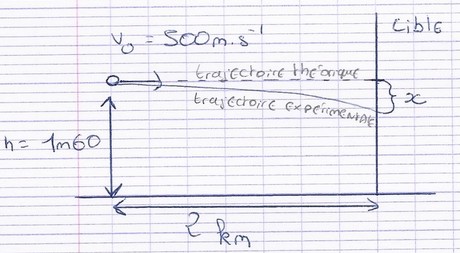 cible
V₀ = 500 m.s⁻¹
trajectoire théorique
x
trajectoire expérimentale
h = 1m60
2 km